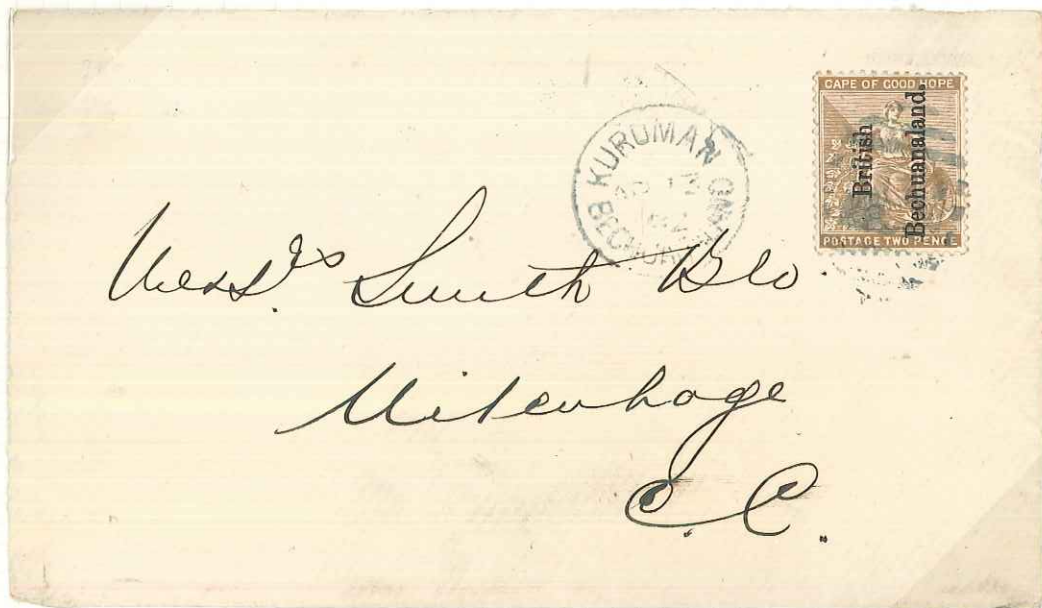 CAPE OF GOOD HOPE
British
Bechuanaland.
POSTAGE TWO PENCE
KURUMAN
BECHUANALAND
Messrs Smith Bro
Uitenhage
C. C.